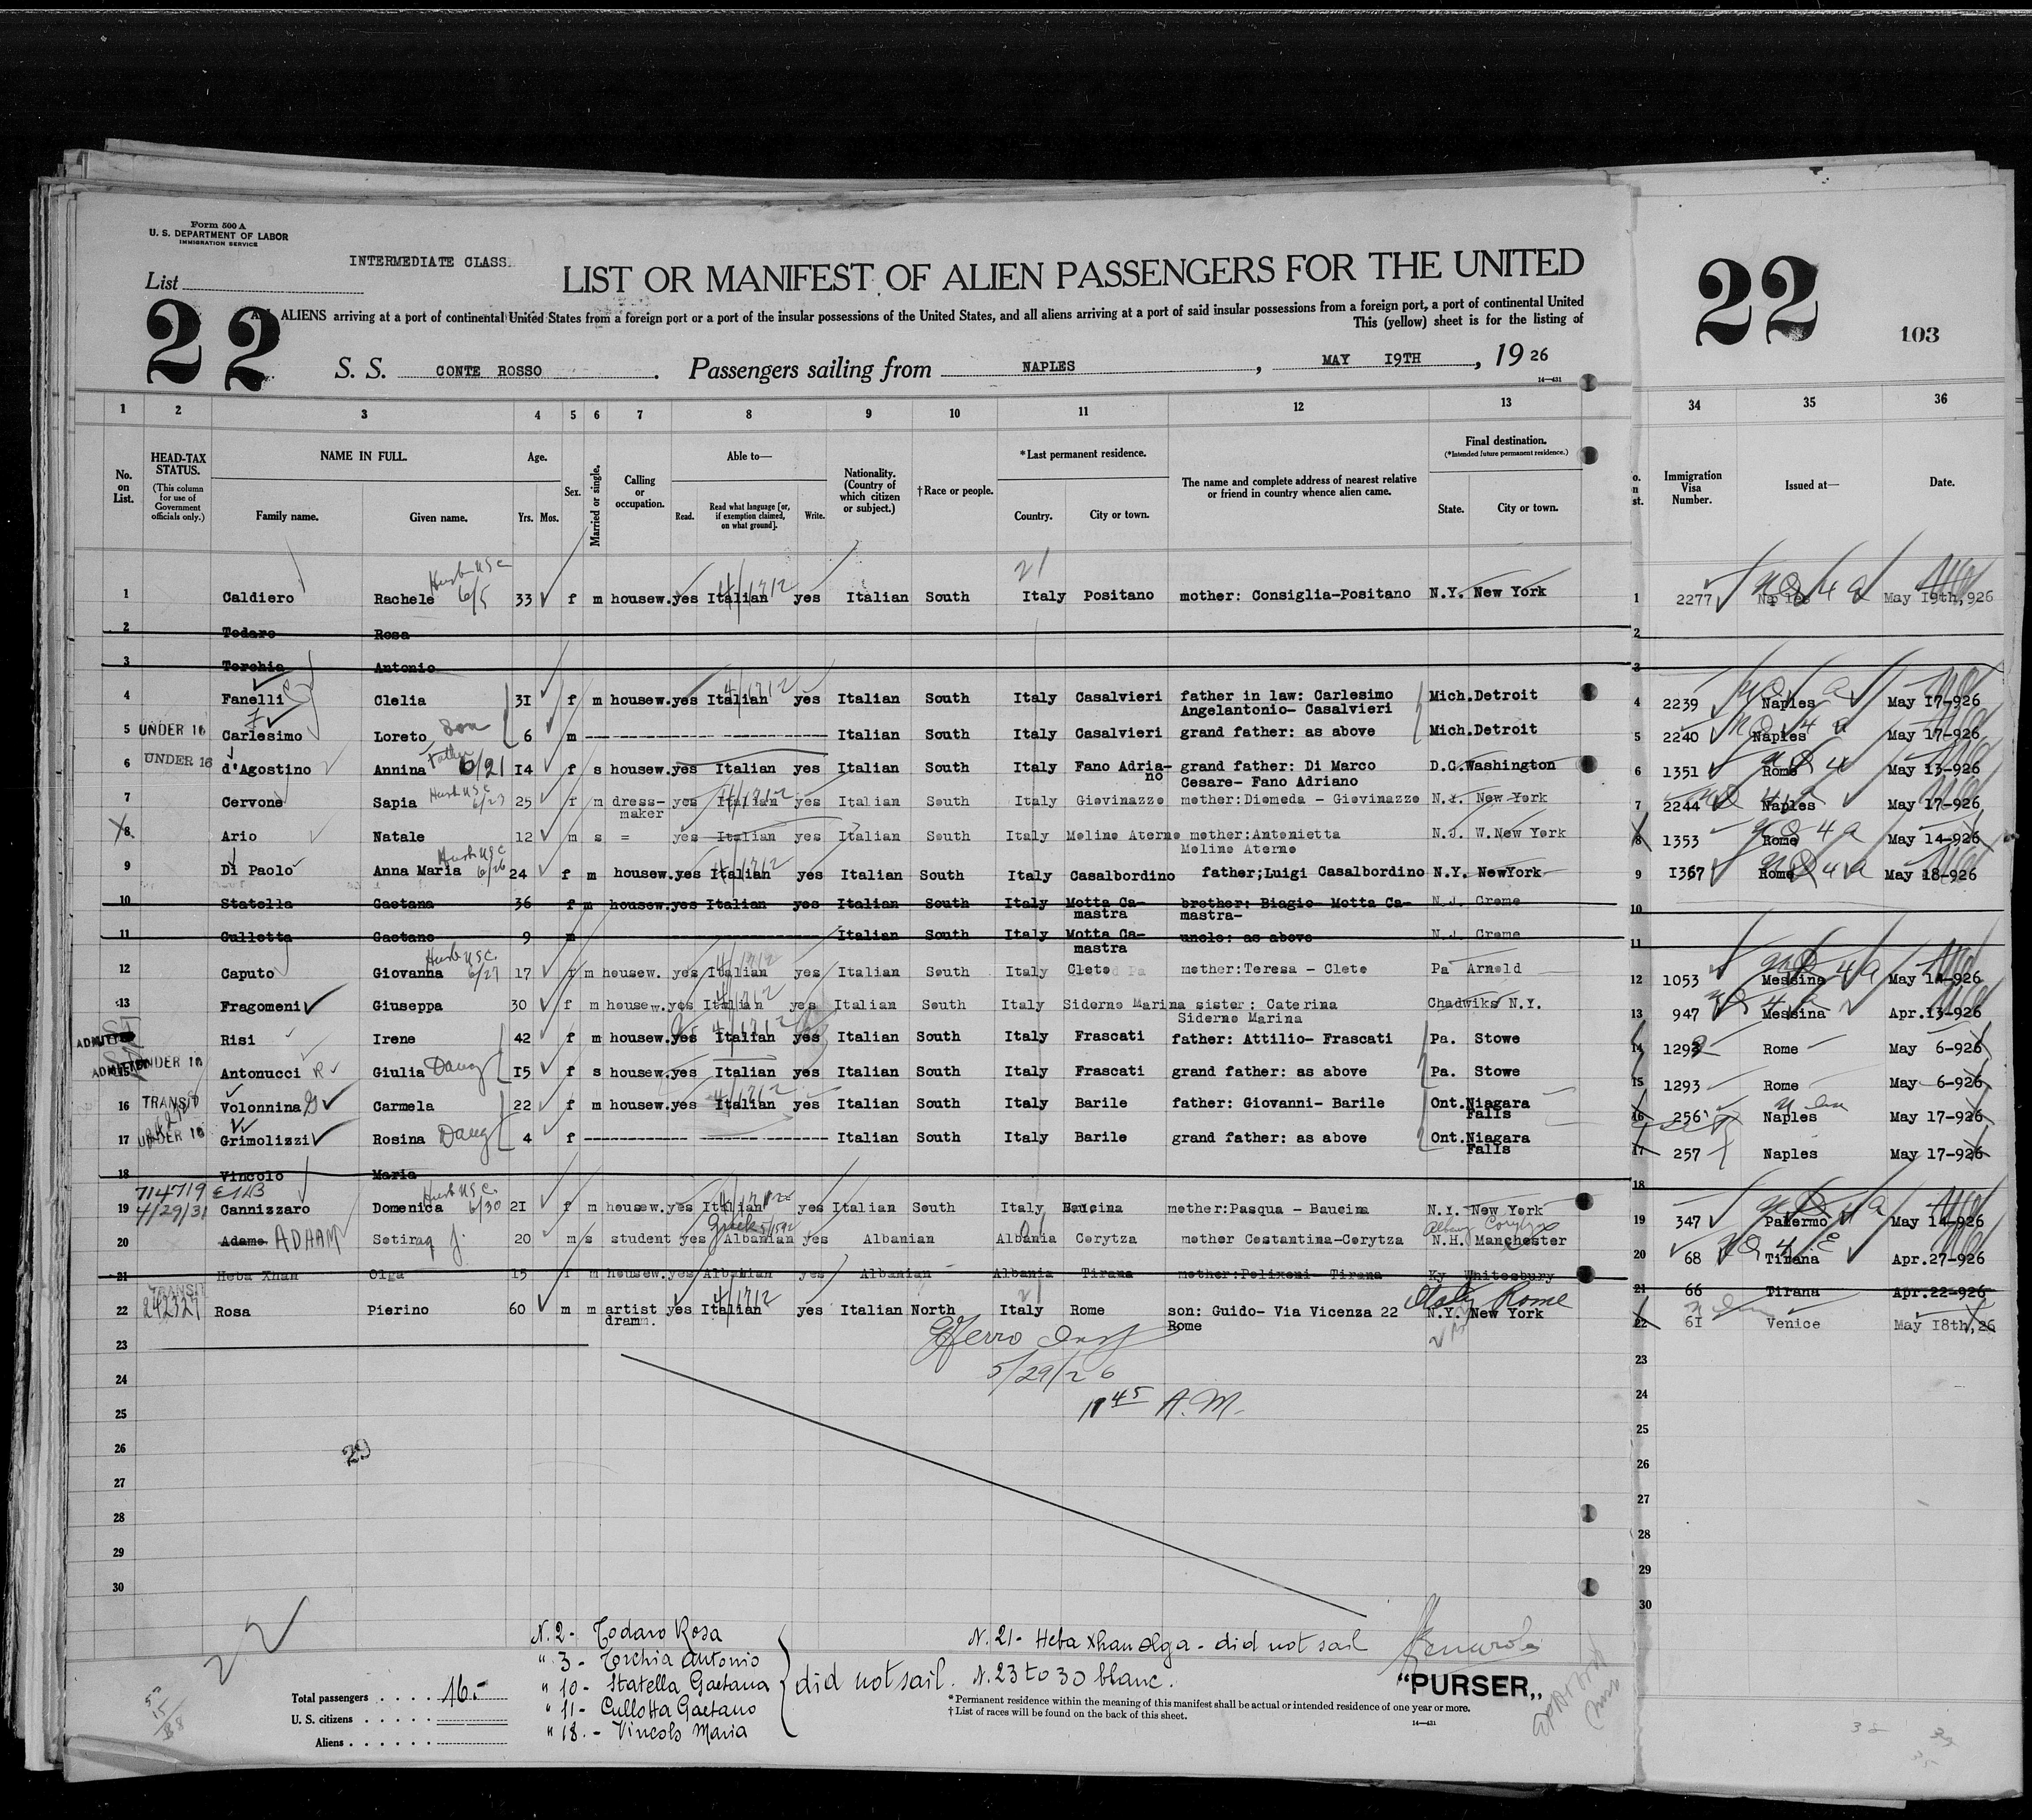 Form 500 A
U. S. DEPARTMENT OF LABOR
IMMIGRATION SERVICE
INTERMEDIATE CLASS
List
LIST OR MANIFEST OF ALIEN PASSENGERS FOR THE UNITED
22
22
103
ALIENS arriving at a port of continental United States from a foreign port or a port of the insular possessions of the United States, and all aliens arriving at a port of said insular possessions from a foreign port, a port of continental United
This (yellow) sheet is for the listing of
S. S. CONTE ROSSO. Passengers sailing from NAPLES, MAY 19TH, 1926
14—431
1 2 3 4 5 6 7 8 9 10 11 12 13 34 35 36
No. on List.
HEAD-TAX STATUS.
(This column for use of Government officials only.)
NAME IN FULL.
Family name. Given name.
Age.
Yrs. Mos.
Sex.
Married or single.
Calling or occupation.
Able to—
Read. Read what language [or, if exemption claimed, on what ground]. Write.
Nationality. (Country of which citizen or subject.)
†Race or people.
*Last permanent residence.
Country. City or town.
The name and complete address of nearest relative or friend in country whence alien came.
Final destination.
(*Intended future permanent residence.)
State. City or town.
Immigration Visa Number.
Issued at—
Date.
21
Husb USC
1 Caldiero Rachele 6/5 33 f m housew. yes Italian yes Italian South Italy Positano mother: Consiglia-Positano N.Y. New York 1 2277 Naples May 19th,926
2 Todaro Rosa 2
3 Torchia Antonio 3
4 Fanelli C Clelia 31 f m housew. yes Italian yes Italian South Italy Casalvieri father in law: Carlesimo Mich. Detroit 4 2239 Naples May 17-926
Angelantonio- Casalvieri
5 UNDER 16 Carlesimo Loreto Son 6 m Italian South Italy Casalvieri grand father: as above Mich. Detroit 5 2240 Naples May 17-926
6 UNDER 16 d'Agostino Annina Father 6/21 14 f s housew. yes Italian yes Italian South Italy Fano Adriano grand father: Di Marco D.C. Washington 6 1351 Rome May 13-926
Cesare- Fano Adriano
7 Cervone Sapia Husb USC 6/23 25 f m dress-maker yes Italian yes Italian South Italy Giovinazzo mother: Diomeda - Giovinazzo N.Y. New York 7 2244 Naples May 17-926
8 Ario Natale 12 m s = yes Italian yes Italian South Italy Moline Aterno mother: Antonietta N.J. W. New York 8 1353 Rome May 14-926
Moline Aterno
9 Di Paolo Anna Maria Husb USC 6/26 24 f m housew. yes Italian yes Italian South Italy Casalbordino father; Luigi Casalbordino N.Y. NewYork 9 1367 Rome May 18-926
10 Statella Gaetana 36 f m housew. yes Italian yes Italian South Italy Motta Camastra brother: Biagio- Motta Camastra- N.J. Creme 10
11 Cullotta Gaetano 9 m Italian South Italy Motta Camastra uncle: as above N.J. Creme 11
12 Caputo Giovanna Husb USC. 6/27 17 f m housew. yes Italian yes Italian South Italy Cleto mother: Teresa - Cleto Pa Arnold 12 1053 Messina May 14-926
13 Fragomeni Giuseppa 30 f m housew. yes Italian yes Italian South Italy Siderno Marina sister: Caterina Chadwiks N.Y. 13 947 Messina Apr.13-926
Siderno Marina
ADMITTED Risi Irene 42 f m housew. yes Italian yes Italian South Italy Frascati father: Attilio- Frascati Pa. Stowe 14 1292 Rome May 6-926
ADMITTED 15 UNDER 16 Antonucci R Giulia Daug 15 f s housew. yes Italian yes Italian South Italy Frascati grand father: as above Pa. Stowe 15 1293 Rome May 6-926
16 TRANSIT Volonnina G Carmela 22 f m housew. yes Italian yes Italian South Italy Barile father: Giovanni- Barile Ont. Niagara Falls 16 256 Naples May 17-926
17 UNDER 16 Grimolizzi Rosina Daug 4 f Italian South Italy Barile grand father: as above Ont. Niagara Falls 17 257 Naples May 17-926
18 Vincolo Maria 18
714719
4/29/31
19 Cannizzaro Domenica Husb USC. 6/30 21 f m housew. yes Italian yes Italian South Italy Baucina mother: Pasqua - Baucina N.Y. New York 19 347 Palermo May 14-926
20 Adamo ADHAM Sotiraq J. 20 m s student yes Albanian yes Albanian Albania Corytza mother Costantina-Corytza N.H. Manchester 20 68 Tirana Apr.27-926
21 Heba Xhan Olga 15 f m housew. yes Albanian yes Albanian Albania Tirana mother: Polixeni- Tirana Ky Whitesbury 21 66 Tirana Apr.22-926
TRANSIT
242327
22 Rosa Pierino 60 m m artist dram. yes Italian yes Italian North Italy Rome son: Guido- Via Vicenza 22 Rome N.Y. New York Italy Rome 22 61 Venice May 18th,26
23 23
5/29/26
24 24
11 45 A.M.
25 25
26 26
29
27 27
28 28
29 29
30 30
22
N. 2 - Todaro Rosa
" 3 - Torchia Antonio
" 10 - Statella Gaetana
" 11 - Cullotta Gaetano
" 18. - Vincolo Maria
did not sail.
N. 21 - Heba Xhan Olga - did not sail
N. 23 to 30 blanc.
"PURSER"
Total passengers 16.-
U. S. citizens
Aliens
*Permanent residence within the meaning of this manifest shall be actual or intended residence of one year or more.
†List of races will be found on the back of this sheet.
14—431